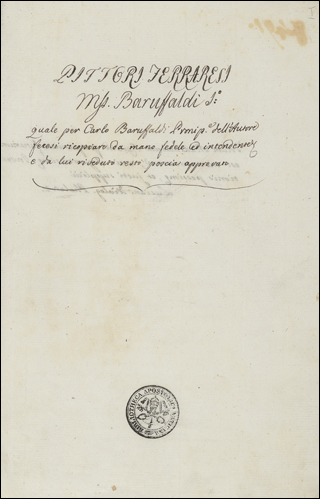 PITTORI FERRARESI
Mss. Baruffaldi I.º
quale per Carlo Baruffaldi Pronip.e dell'Autore
fecesi ricopiare da mano fedele ed intendente
e da lui riveduto restò poscia approvato
BIBLIOTHECA APOSTOLICA VATICANA